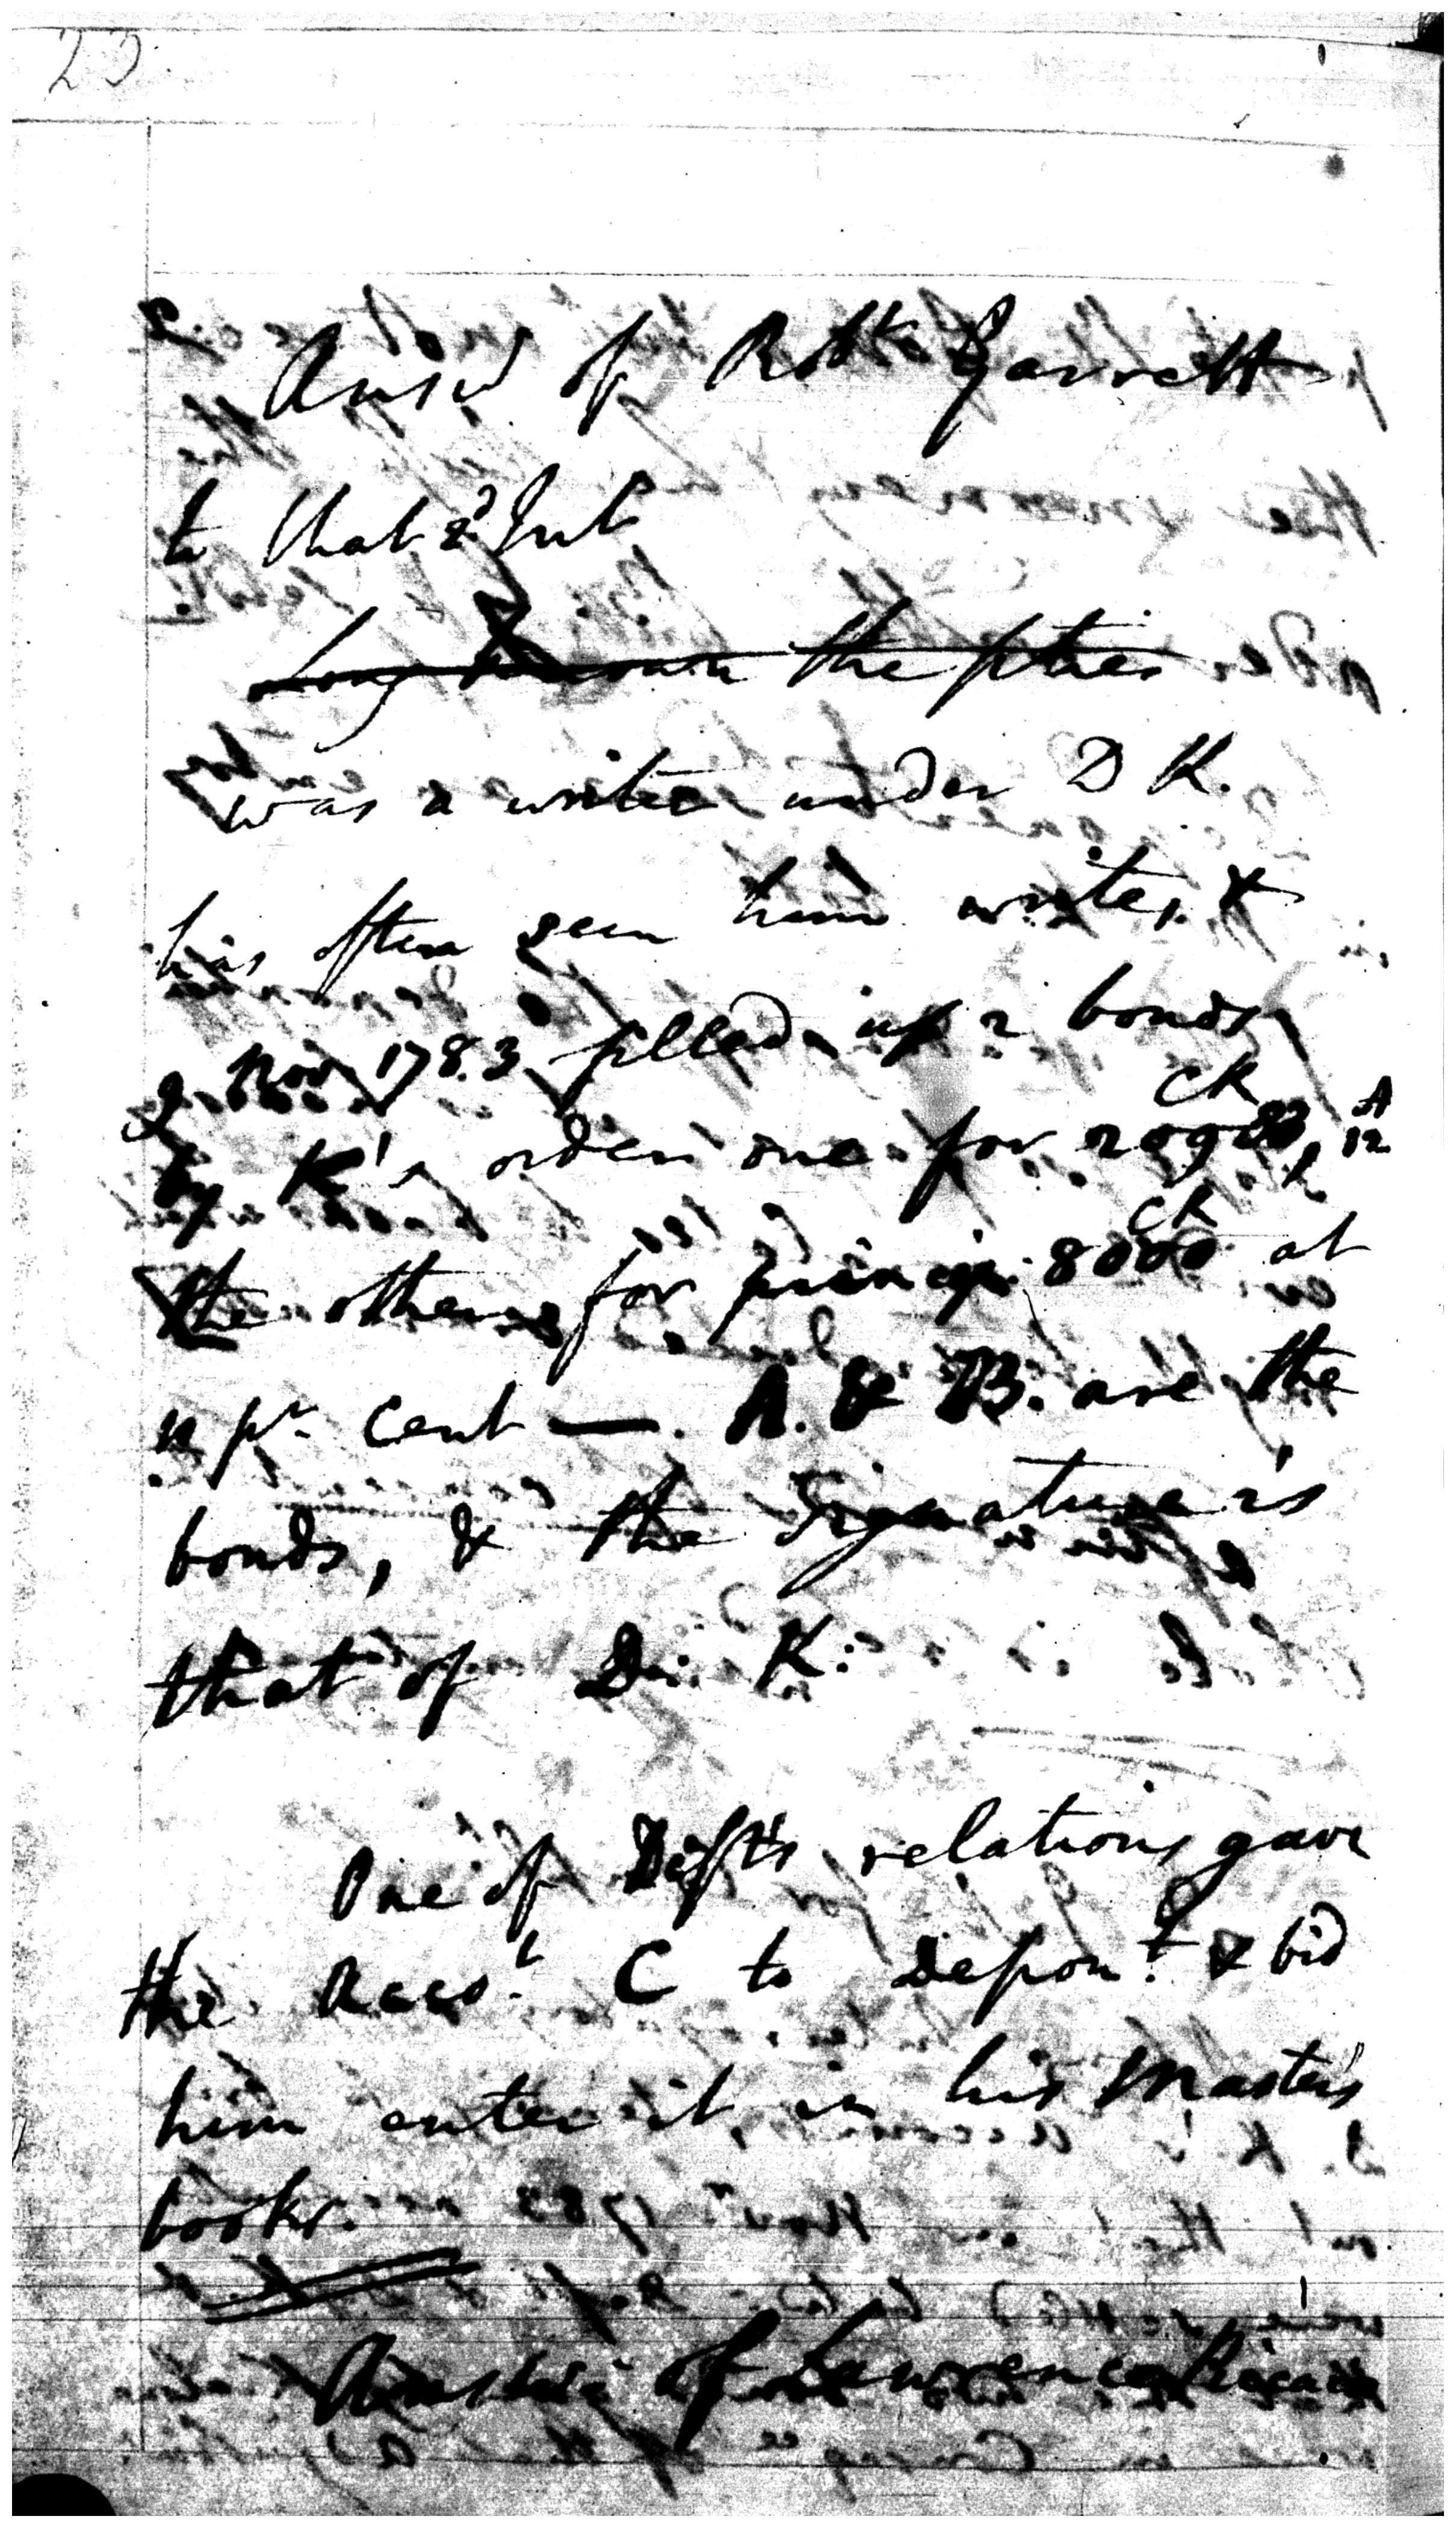 25
Answ of Robt Garrett
to that 2d Int
Long known the pties
was a writer under D K.
has often seen him write, &
2 Nov 1783 filled up 2 bonds
CK
by K's order one for A
12
CK
the other for princip. 8000 at
12 pr cent —. A. & B. are the
bonds, & the Signature is
that of D. K:
One of Defts relations gave
the Acco.t C to Depon.t & bid
him enter it in his Masters
books.
Answ of Lawrence